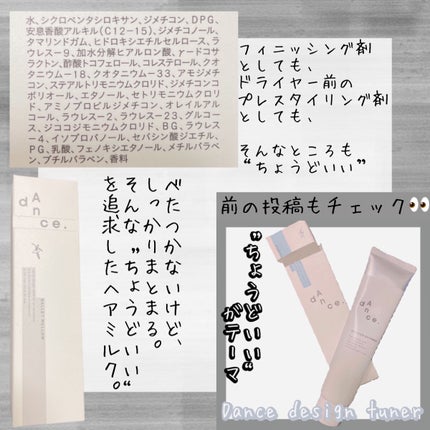 水、シクロペンタシロキサン、ジメチコン、DPG、
安息香酸アルキル(C12-15)、ジメチコノール、
タマリンドガム、ヒドロキシエチルセルロース、ラウ
レス-9、加水分解ヒアルロン酸、γ-ドコサラ
クトン、酢酸トコフェロール、コレステロール、クオ
タニウム-18、クオタニウム-33、アモジメチコ
ン、ステアルトリモニウムクロリド、ジメチコンコ
ポリオール、エタノール、セトリモニウムクロリ
ド、アミノプロピルジメチコン、オレイルアルコ
ール、ラウレス-2、ラウレス-23、グルコー
ス、ジココジモニウムクロリド、BG、ラウレス
-4、イソプロパノール、セバシン酸ジエチル、
PG、乳酸、フェノキシエタノール、メチルパラベ
ン、ブチルパラベン、香料
フィニッシング剤
としても、
ドライヤー前の
プレスタイリング剤
としても、
そんなところも
"ちょうどいい"
べたつかないけど、
しっかりまとまる。
そんな"ちょうどいい"
を追求したヘアミルク。
dAnce.
前の投稿もチェック👀
"ちょうどいい"
がテーマ
dAnce.
dAnce.
Dance design tuner